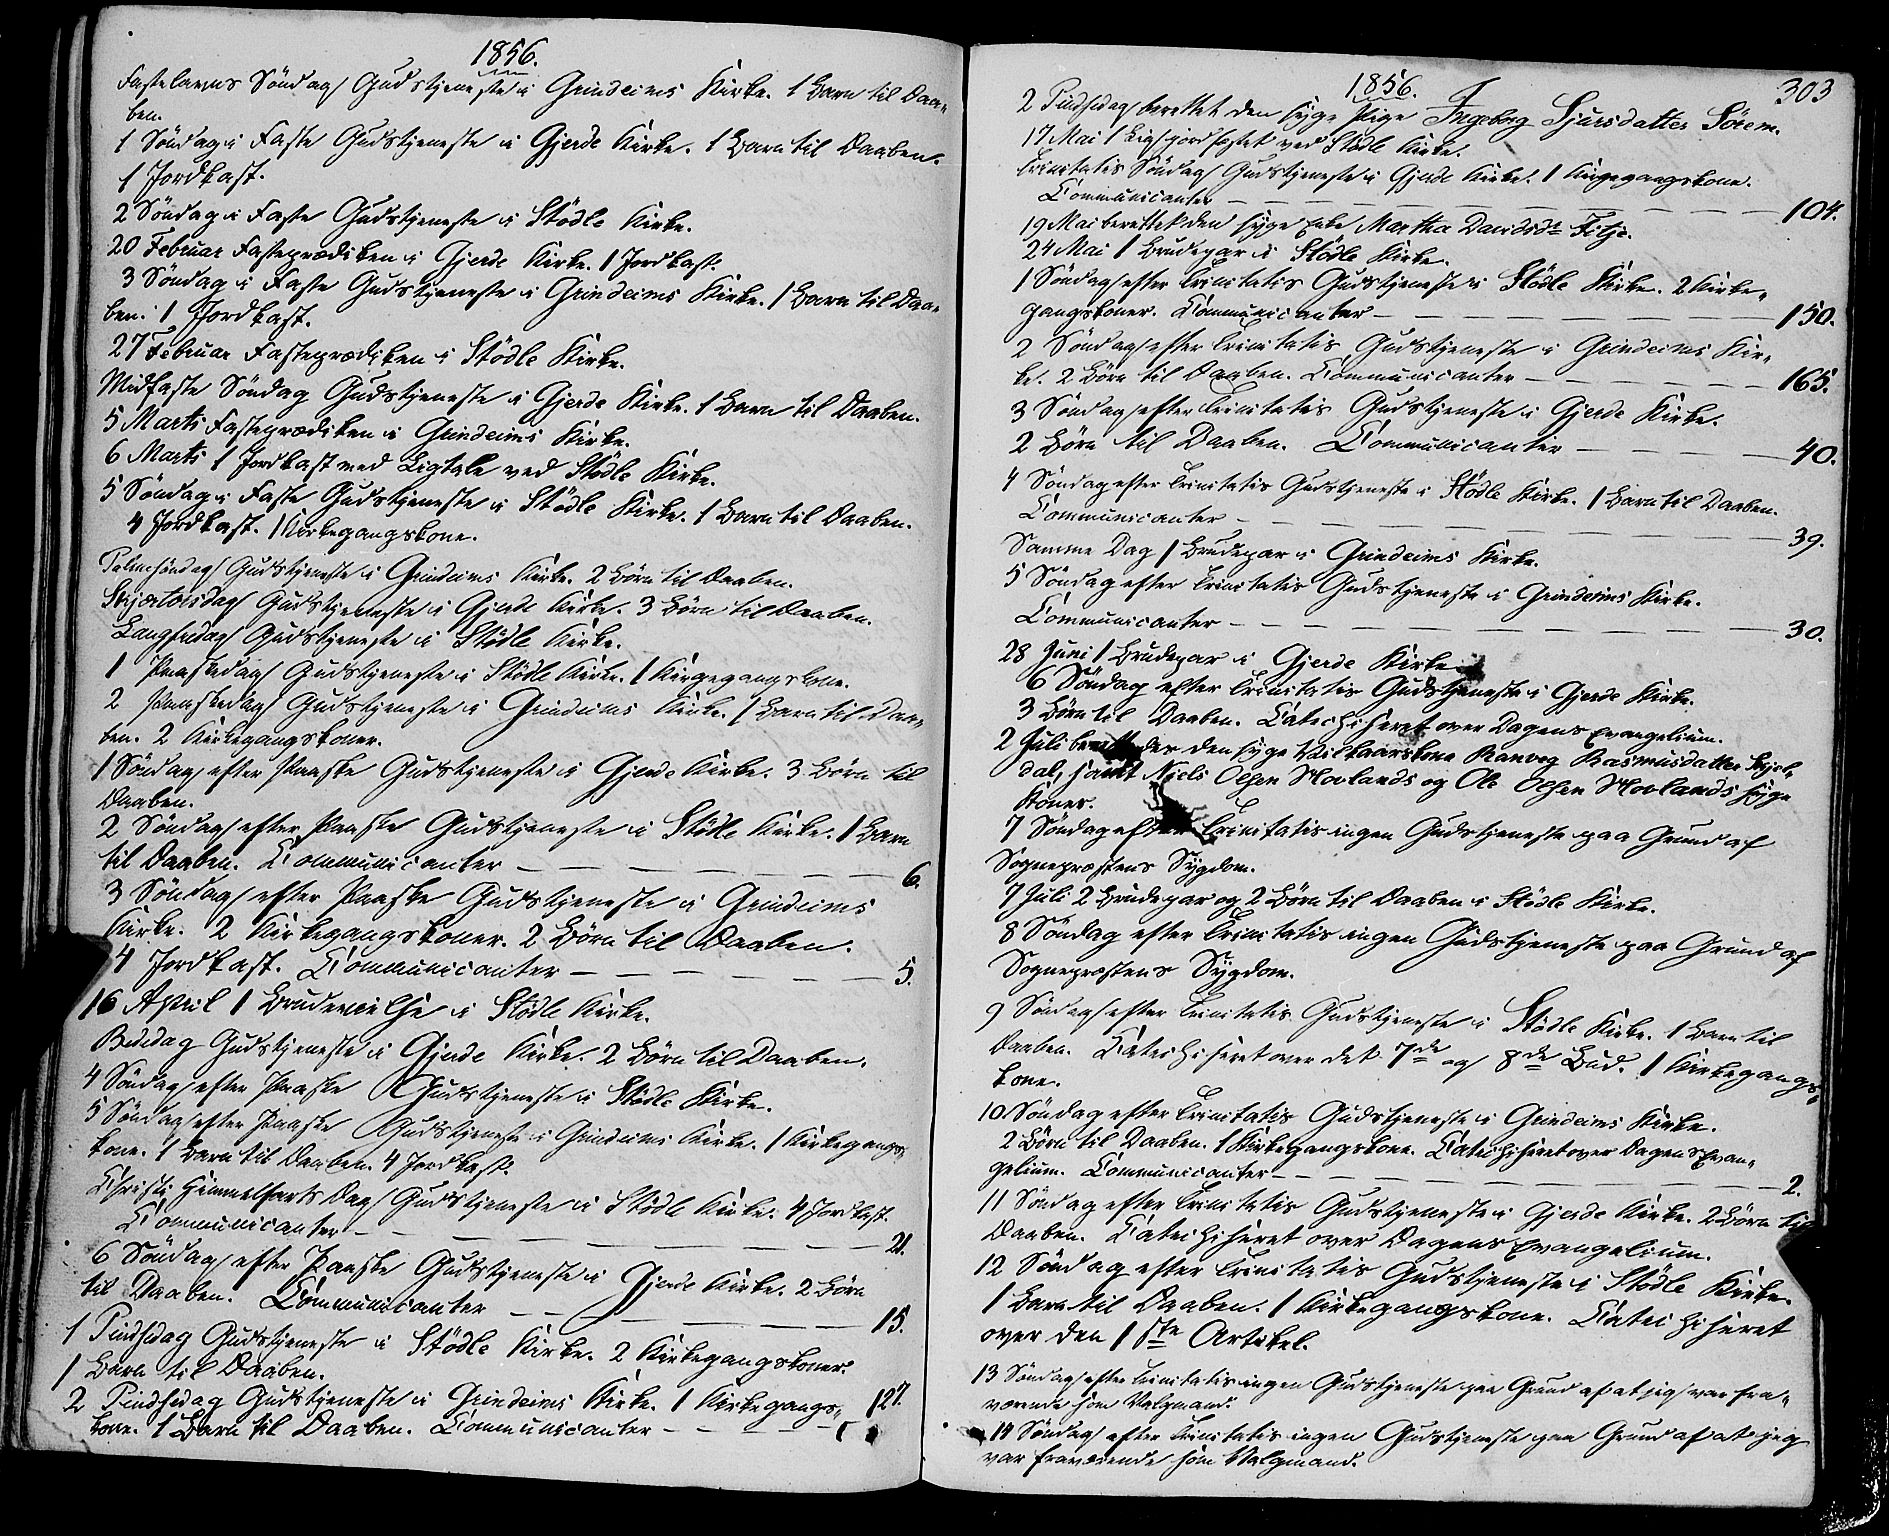 1856.
Fastelavns Söndag Gudstjeneste i Grindeims Kirke. 1 Barn til Daa-
ben.
1 Söndag i Faste Gudstjeneste i Gjerde Kirke. 1 Barn til Daaben.
1 Jordkast.
2 Söndag i Faste Gudstjeneste i Stödle Kirke.
20 Februar Fasteprædiken i Gjerde Kirke. 1 Jordkast.
3 Söndag i Faste Gudstjeneste i Grindeims Kirke. 1 Barn til Daa-
ben. 1 Jordkast.
27 Februar Fasteprædiken i Stödle Kirke.
Midfaste Söndag Gudstjeneste i Gjerde Kirke. 1 Barn til Daaben.
5 Marts Fasteprædiken i Grindeims Kirke.
6 Marts 1 Jordkast med Ligtale ved Stödle Kirke.
5 Söndag i Faste Gudstjeneste i Stödle Kirke. 1 Barn til Daaben.
4 Jordkast. 1 Kirkegangskone.
Palmesöndag Gudstjeneste i Grindeims Kirke. 2 Börn til Daaben.
Skjærtorsdag Gudstjeneste i Gjerde Kirke. 3 Börn til Daaben.
Langfredag Gudstjeneste i Stödle Kirke.
1 Paaskedag Gudstjeneste i Stödle Kirke. 1 Kirkegangskone.
2 Paaskedag Gudstjeneste i Grindeims Kirke. 1 Barn til Daa-
ben. 2 Kirkegangskoner.
1 Söndag efter Paaske Gudstjeneste i Gjerde Kirke. 3 Börn til
Daaben.
2 Söndag efter Paaske Gudstjeneste i Stödle Kirke. 1 Barn
til Daaben. Communicanter — — — — — — 6.
3 Söndag efter Paaske Gudstjeneste i Grindeims
Kirke. 2 Kirkegangskoner. 2 Börn til Daaben.
4 Jordkast. Communicanter — — — — — 5.
16 April 1 Brudevielse i Stödle Kirke.
Bededag Gudstjeneste i Gjerde Kirke. 2 Börn til Daaben.
4 Söndag efter Paaske Gudstjeneste i Stödle Kirke.
5 Söndag efter Paaske Gudstjeneste i Grindeims Kirke. 1 Kirkegangs-
kone. 1 Barn til Daaben. 4 Jordkast.
Christi Himmelfarts Dag Gudstjeneste i Stödle Kirke. 4 Jordkast.
Communicanter — — — — — — — 21.
6 Söndag efter Paaske Gudstjeneste i Gjerde Kirke. 2 Börn
til Daaben. Communicanter — — — — — 15.
1 Pindsedag Gudstjeneste i Stödle Kirke. 2 Kirkegangskoner.
1 Barn til Daaben.
2 Pindsedag Gudstjeneste i Grindeims Kirke. 1 Kirkegangs-
kone. 1 Barn til Daaben. Communicanter — — — — 127.
303
1856.
2 Pindsedag berettet den syge Pige Ingeborg Sjursdatter Sörem.
17 Mai 1 Lig jordfæstet ved Stödle Kirke.
Trinitatis Söndag Gudstjeneste i Gjerde Kirke. 1 Kirkegangskone.
Communicanter — — — — — — — 104.
19 Mai berettet den syge Enke Martha Davidsdr Fitje.
24 Mai 1 Brudepar i Stödle Kirke.
1 Söndag efter Trinitatis Gudstjeneste i Stödle Kirke. 2 Kirke-
gangskoner. Communicanter — — — — — — 150.
2 Söndag efter Trinitatis Gudstjeneste i Grindeims Kir-
ke. 2 Börn til Daaben. Communicanter — — — — — 165.
3 Söndag efter Trinitatis Gudstjeneste i Gjerde Kirke.
2 Börn til Daaben. Communicanter — — — — 40.
4 Söndag efter Trinitatis Gudstjeneste i Stödle Kirke. 1 Barn til Daaben.
Communicanter — — — — — — — 39.
Samme Dag 1 Brudepar i Grindeims Kirke.
5 Söndag efter Trinitatis Gudstjeneste i Grindeims Kirke.
Communicanter — — — — — — — 30.
28 Juni 1 Brudepar i Gjerde Kirke
6 Söndag efter Trinitatis Gudstjeneste i Gjerde Kirke.
3 Börn til Daaben. Catechiseret over Dagens Evangelium.
2 Juli den syge Vilkaarskone Ranveg Rasmusdatter Skjol-
dal, samt Niels Olsen Hovlands og Ole Olsen Hovlands syge
Koner.
7 Söndag efter Trinitatis ingen Gudstjeneste paa Grund af
Sognepræstens Sygdom.
7 Juli 2 Brudepar og 2 Börn til Daaben i Stödle Kirke.
8 Söndag efter Trinitatis ingen Gudstjeneste paa Grund af
Sognepræstens Sygdom.
9 Söndag efter Trinitatis Gudstjeneste i Stödle Kirke. 1 Barn til
Daaben. Catechiseret over det 7de og 8de Bud. 1 Kirkegangs-
kone.
10 Söndag efter Trinitatis Gudstjeneste i Grindeims Kirke.
2 Börn til Daaben. 1 Kirkegangskone. Catechiseret over Dagens Evan-
gelium. Communicanter — — — — — — — 2.
11 Söndag efter Trinitatis Gudstjeneste i Gjerde Kirke. 2 Börn til
Daaben. Catechiseret over Dagens Evangelium.
12 Söndag efter Trinitatis Gudstjeneste i Stödle Kirke.
1 Barn til Daaben. 1 Kirkegangskone. Catechiseret
over den 1ste Artikel.
13 Söndag efter Trinitatis ingen Gudstjeneste paa Grund af at jeg var fra-
værende som Valgmand.
14 Söndag efter Trinitatis ingen Gudstjeneste paa Grund af at jeg
var fraværende som Valgmand.